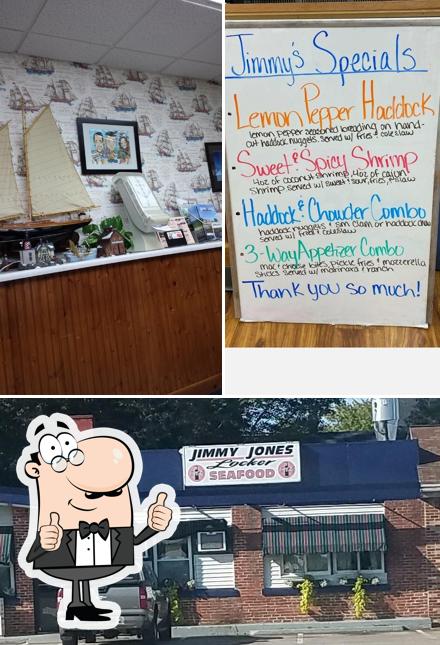 Jimmy's Specials
• Lemon Pepper Haddock
lemon pepper seasoned breading on hand-
cut haddock nuggets. served w/ fries & coleslaw
• Sweet & Spicy Shrimp
4oz of coconut shrimp, 4oz of cajun
shrimp served w/ sweet & sour, fries, & slaw
• Haddock & Chowder Combo
haddock nuggets & sm clam or haddock chow
served w/ fries & coleslaw
• 3-Way Appetizer Combo
mac & cheese bites, pickle fries & mozzerella
sticks served w/ marinara & ranch
Thank you so much!
JIMMY JONES
Locker
SEAFOOD